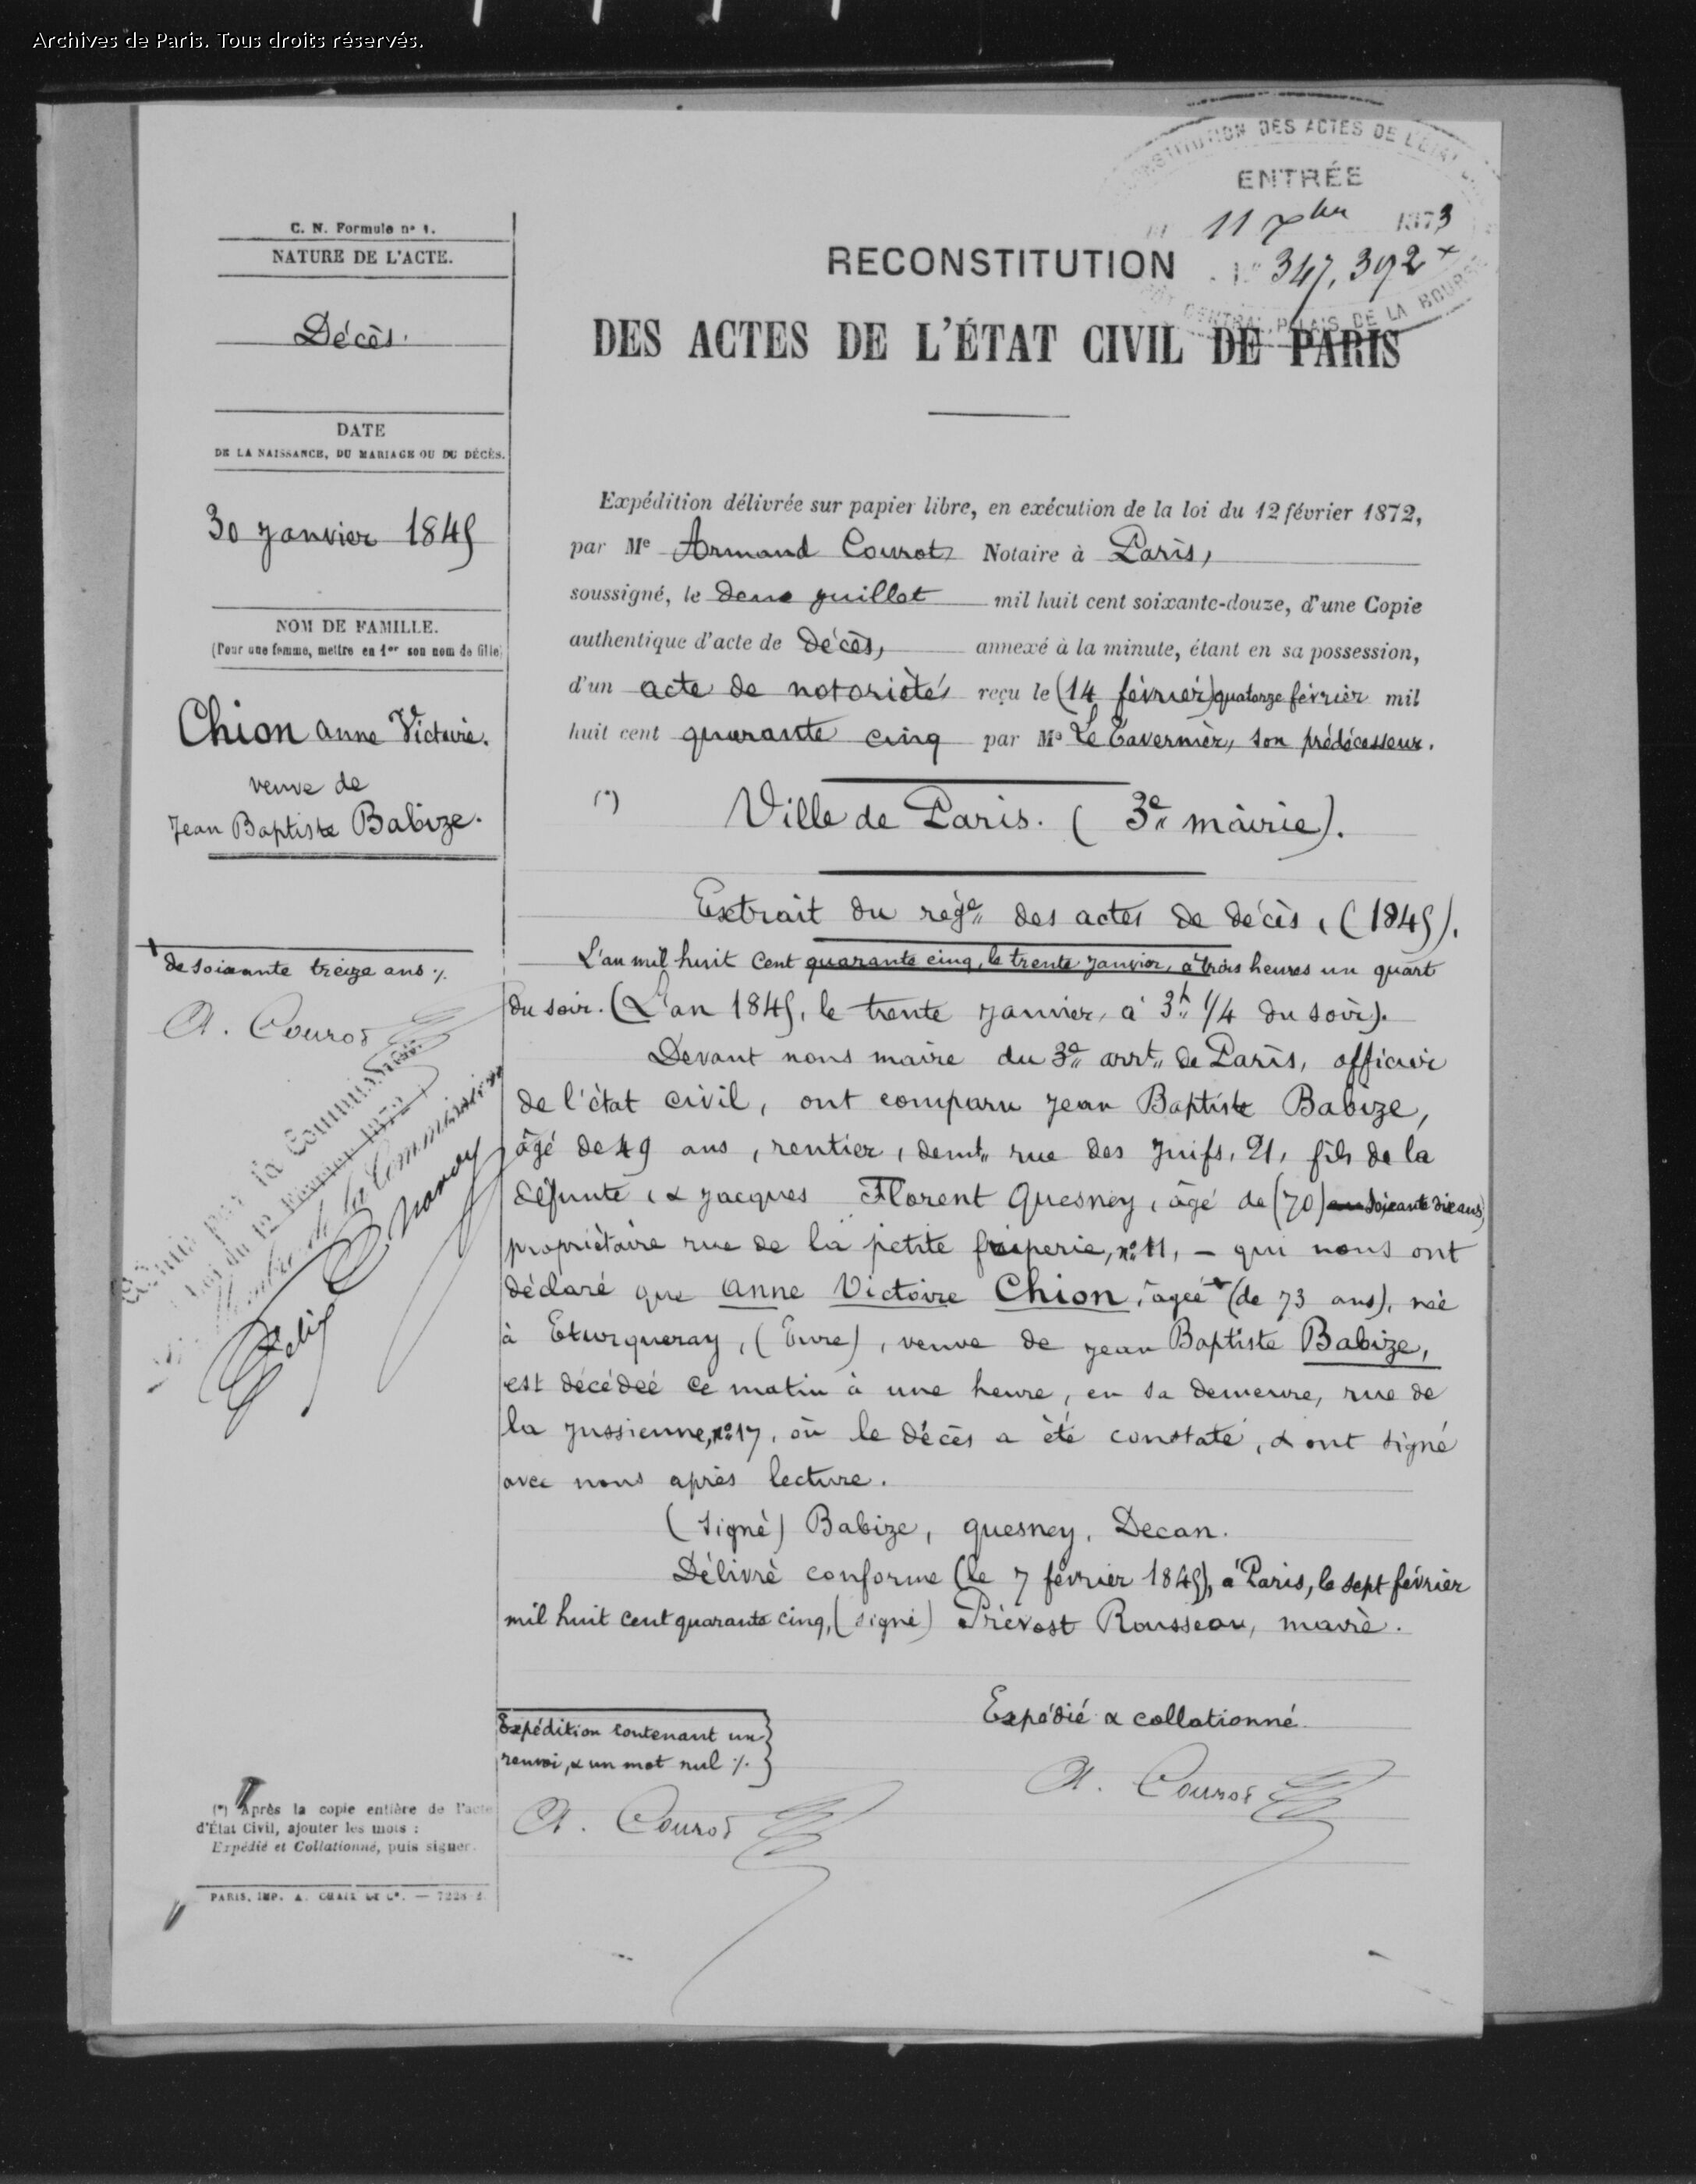 Archives de Paris. Tous droits réservés.
DES ACTES DE L'ÉTAT
ENTRÉE
11 7bre 1873
347,392
CENTRAL, PALAIS DE LA BOURSE
C. N. Formule nº 1.
NATURE DE L'ACTE.
Décès.
DATE
DE LA NAISSANCE, DU MARIAGE OU DU DÉCÈS.
30 Janvier 1845
NOM DE FAMILLE.
(Pour une femme, mettre en 1er son nom de fille)
Chion anne Victoire.
veuve de
Jean Baptiste Babize.
de soixante treize ans ./.
A. Courot
Admis par la Commission
Loi du 12 Février 1872
Membre de la Commission
(*) Après la copie entière de l'acte
d'État Civil, ajouter les mots :
Expédié et Collationné, puis signer.
PARIS, IMP. A. CHAIX ET Cº. — 7228-2.
RECONSTITUTION
DES ACTES DE L'ÉTAT CIVIL DE PARIS
Expédition délivrée sur papier libre, en exécution de la loi du 12 février 1872,
par Me Armand Courot Notaire à Paris,
soussigné, le deux juillet mil huit cent soixante-douze, d'une Copie
authentique d'acte de décès, annexé à la minute, étant en sa possession,
d'un acte de notoriété reçu le (14 février) quatorze février mil
huit cent quarante cinq par Me Le Tavernier, son prédécesseur.
(*) Ville de Paris. (3e mairie).
Extrait du rege des actes de décès, (1845).
L'an mil huit Cent quarante cinq, le trente Janvier, à trois heures un quart
du soir. (L'an 1845, le trente janvier, à 3h 1/4 du soir).
Devant nous maire du 3e arrt de Paris, officier
de l'état civil, ont comparu Jean Baptiste Babize,
âgé de 49 ans, rentier, demt rue des Juifs, 21, fils de la
défunte, & Jacques Florent Quesney, âgé de (70) ans soixante dix ans
propriétaire rue de la petite friperie, nº 11, — qui nous ont
déclaré que Anne Victoire Chion, âgée (de 73 ans), née
à Eturqueray, (Eure), veuve de Jean Baptiste Babize,
est décédée ce matin à une heure, en sa demeure, rue de
la Jussienne, nº 17, où le décès a été constaté, & ont signé
avec nous après lecture.
(signé) Babize, quesney, Decan.
Délivré conforme (le 7 février 1845), à Paris, le sept février
mil huit cent quarante cinq, (signé) Prévost Rousseau, maire.
Expédition contenant un
renvoi, & un mot nul ./.
A. Courot
Expédié & collationné
A. Courot